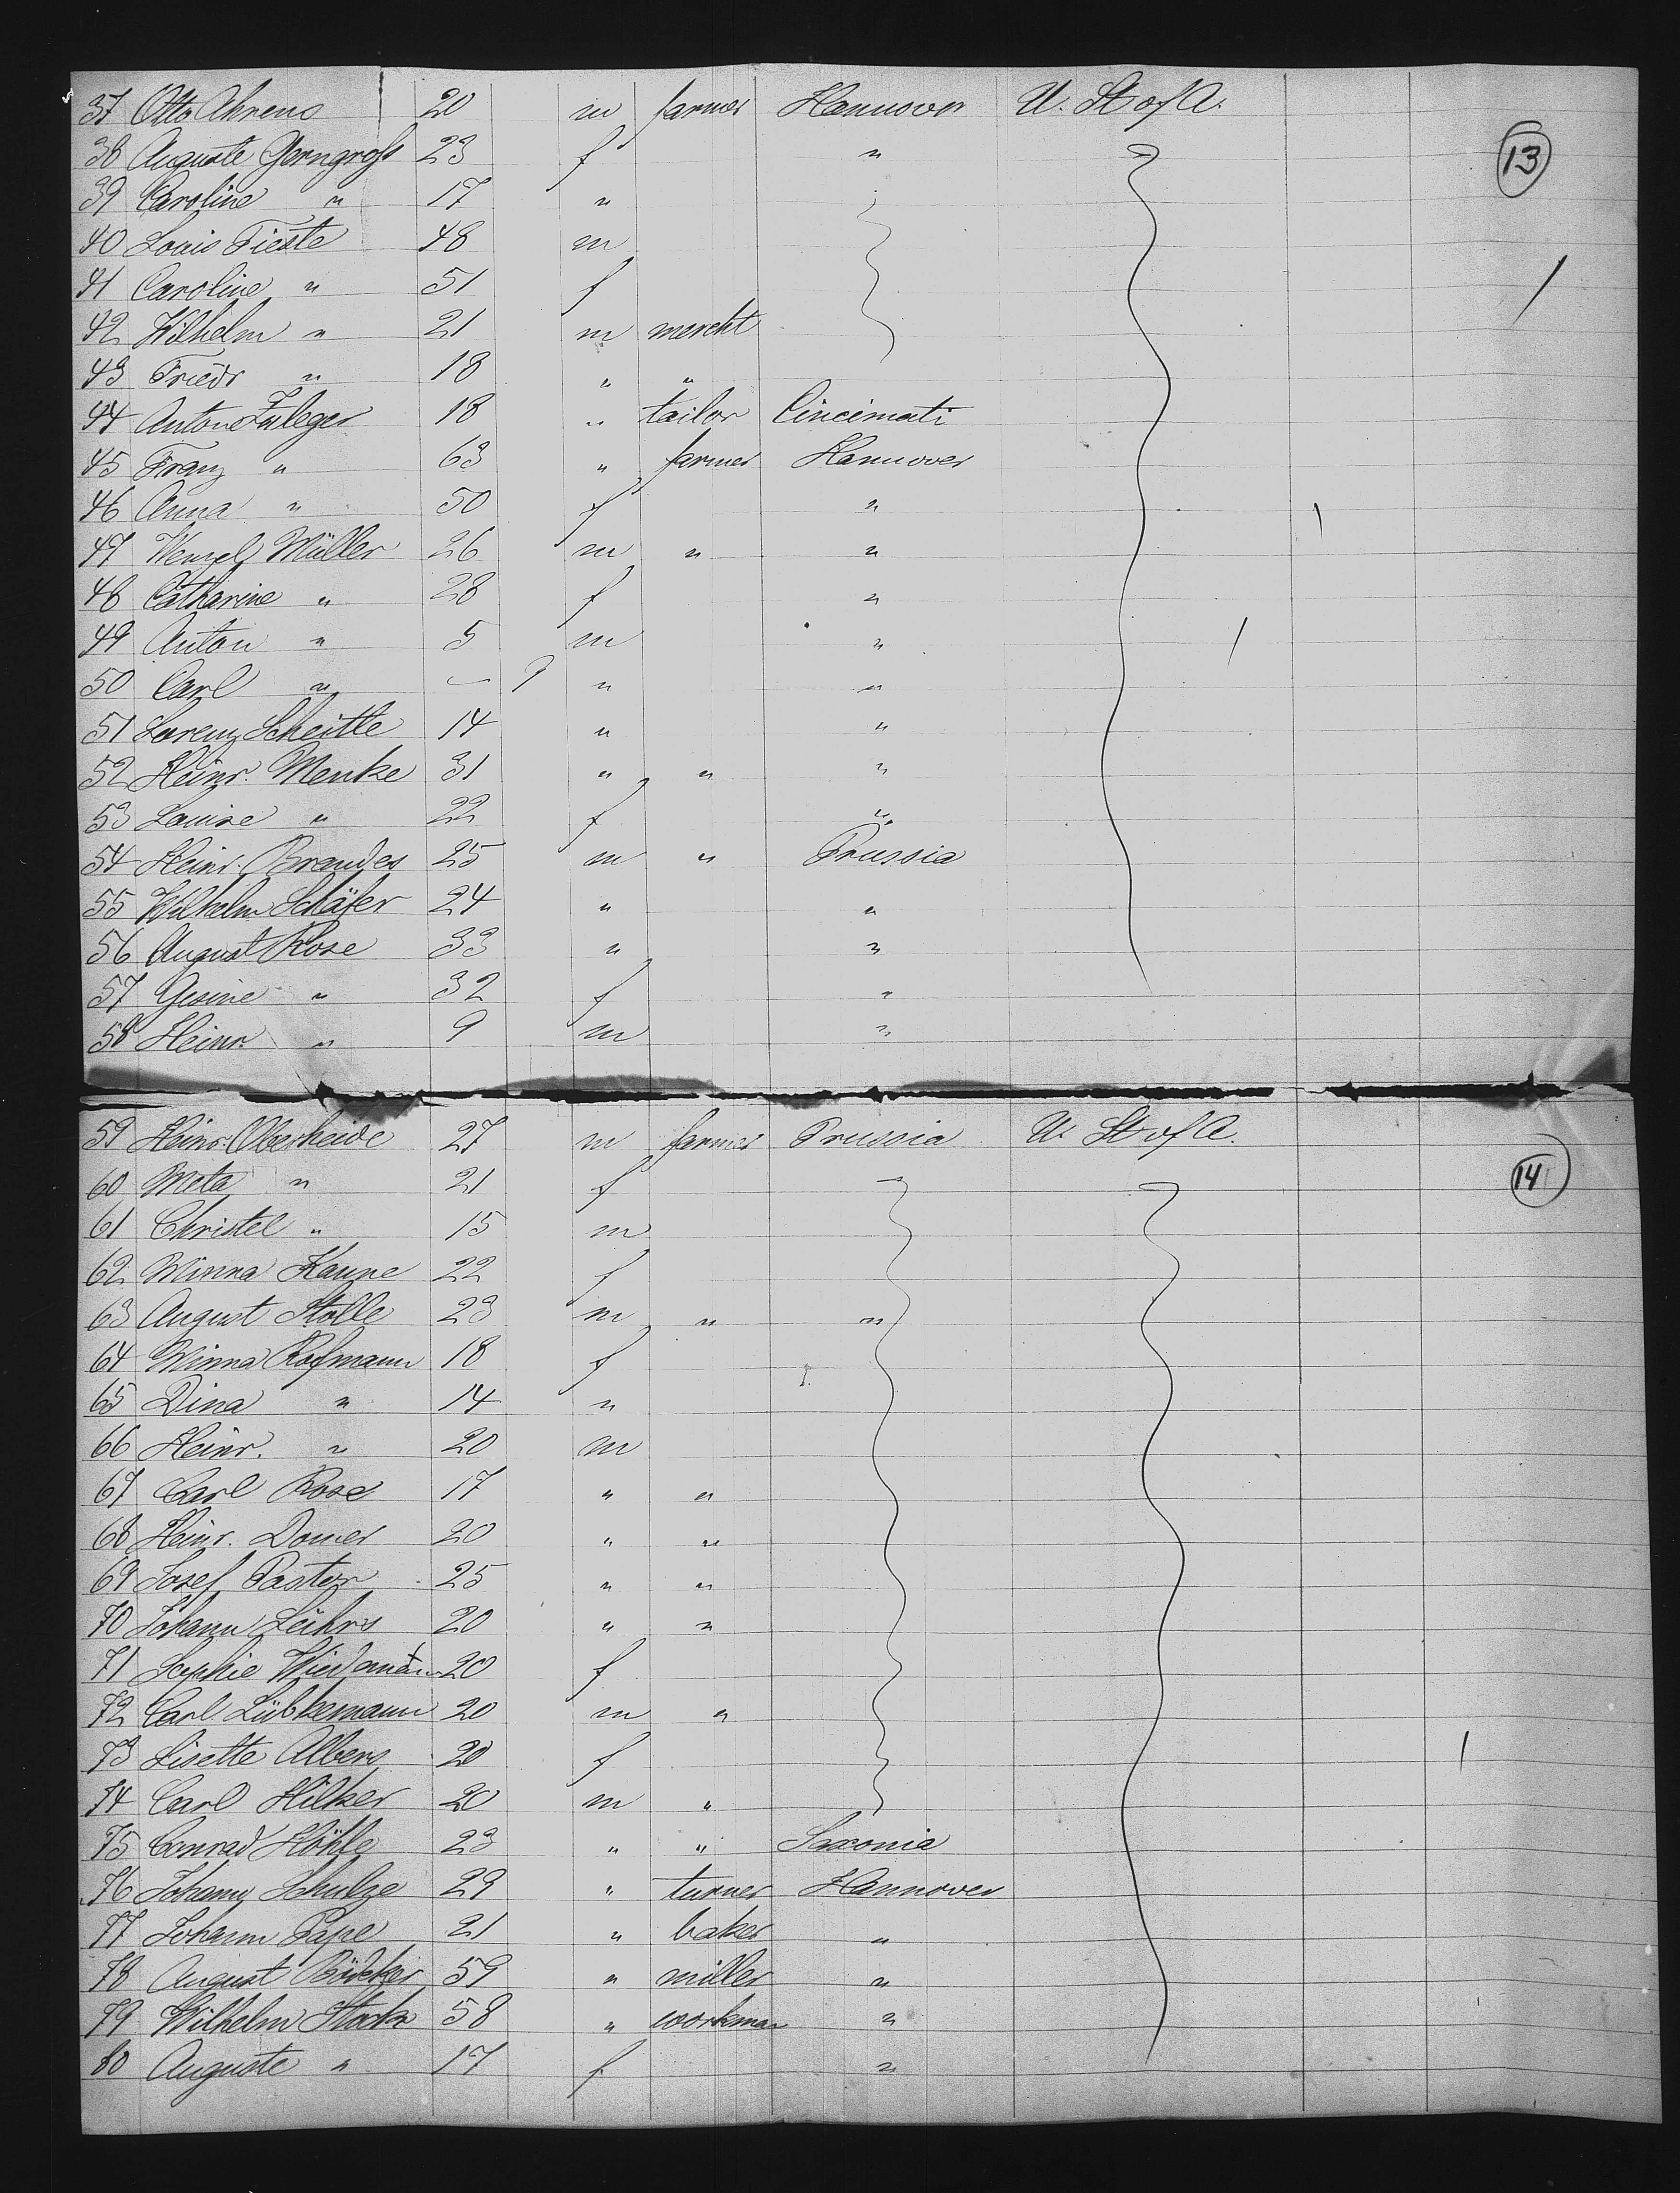 37 Otto Ahrens 20 m farmer Hannover U. St of A.
38 Auguste Gerngroß 23 f "
13
39 Caroline " 17 "
40 Louis Tieste 48 m
41 Caroline " 51 f
42 Wilhelm " 21 m mercht
43 Friedr " 18 " "
44 Anton Zuleger 18 " tailor Cincinnati
45 Franz " 63 " farmer Hannover
46 Anna " 50 f "
47 Wenzel Müller 26 m " "
48 Catharine " 28 f "
49 Anton " 5 m "
50 Carl " — 9 " "
51 Lorenz Scheitle 14 " "
52 Heinr. Menke 31 " " "
53 Louise " 22 f "
54 Heinr. Brandes 25 m " Prussia
55 Wilhelm Schäfer 24 " "
56 August Rose 33 " "
57 Gesine " 32 f "
58 Heinr. " 9 m "
59 Heinr. Oberheide 27 m farmer Prussia U. St of A.
60 Meta " 21 f
14
61 Christel " 15 m
62 Minna Kaune 22 f
63 August Stolle 23 m " "
64 Minna Hofmann 18 f
65 Dina " 14 "
66 Heinr. " 20 m
67 Carl Rose 17 " "
68 Heinr. Domer 20 " "
69 Josef Pastor 25 " "
70 Johann Lührs 20 " "
71 Sophie 20 f
72 Carl Lübkemann 20 m "
73 Lisette Albers 20 f
74 Carl Hilker 20 m "
75 Conrad Höhle 23 " " Saxonia
76 Johann Schulze 29 " turner Hannover
77 Johann Pape 21 " baker "
78 August Bödeker 59 " miller "
79 Wilhelm Stock 58 " workman "
80 Auguste " 17 f "